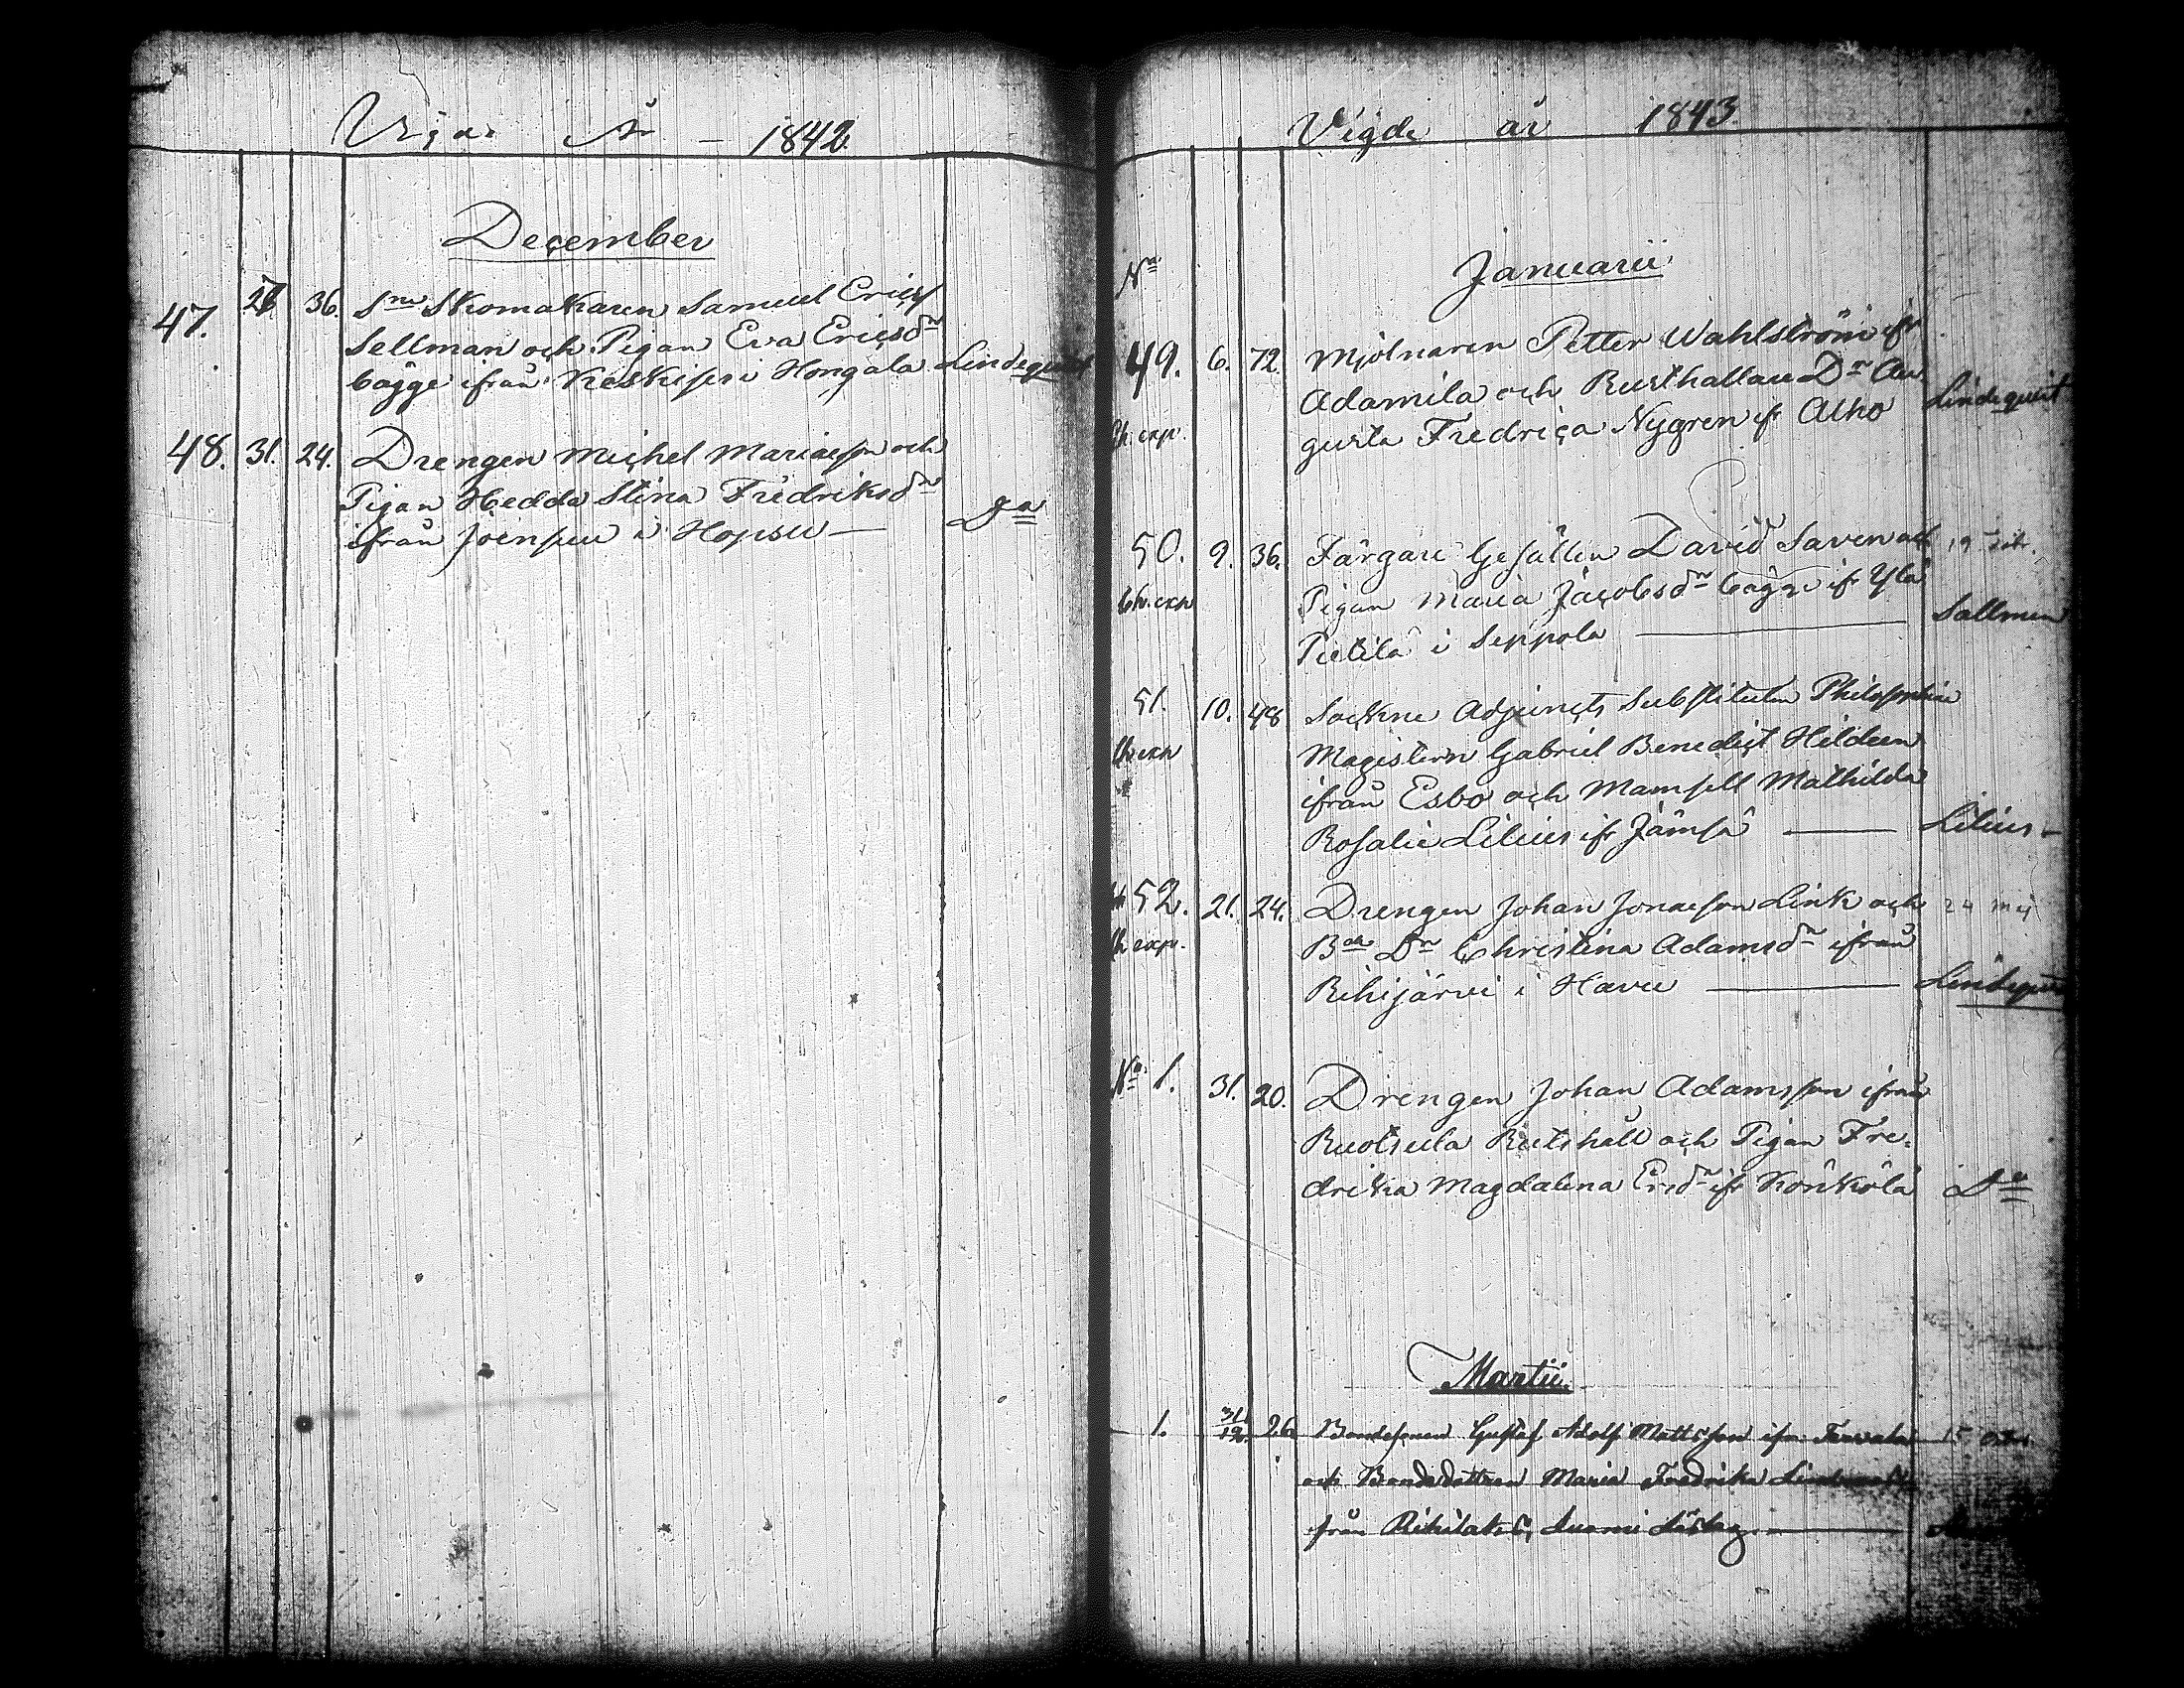 Vigde År - 1842
December
47. 28 36. Sn Skomakaren Samuel Erics
Sellman och Pigan Eva Ericsdr
bägge ifrån Keskiseri Hongola Lindequist
48. 31. 24. Drengen Michel Mariaeson och
Pigan Hedda Stina Fredriksdr
ifrån Joensuu i Hopsu — Do
Vigde år 1843
No Januarii
49. 6. 72. Mjölnaren Petter Wahlström ifr
Adamila och Rusthållare Dr Au
gusta Fredrica Nygren ifr Alho Lindequist
50. 9. 36. Färgare Gesällen David Saven och
Pigan Maria Jacobsdr bägge ifr Ylä
Pietilä i Seppola — Sallmen
51. 10. 48 Sockne Adjuncts Substituten Philosophiae
Magistern Gabriel Benedict Hildeen
ifrån Esbo och Mamsell Mathilda
Rosalie Lilius ifr Jämsä — Lilius -
52. 21. 24. Drengen Johan Jonaeson Link och 24 Maj
Bde Dr Christina Adamsdr ifrån
Rihijärvi i Havu — Lindequist
No 1. 31. 20. Drengen Johan Adamsson ifrån
Ruotsula Rutshåll och Pigan Fre-
drika Magdalena Ersdr ifr Könkölä Do
Martii
1. 31/12. 26 Bondesonen Gustaf Adolf Mattsson ifrn
och Bondedottren Maria Fredrika
från